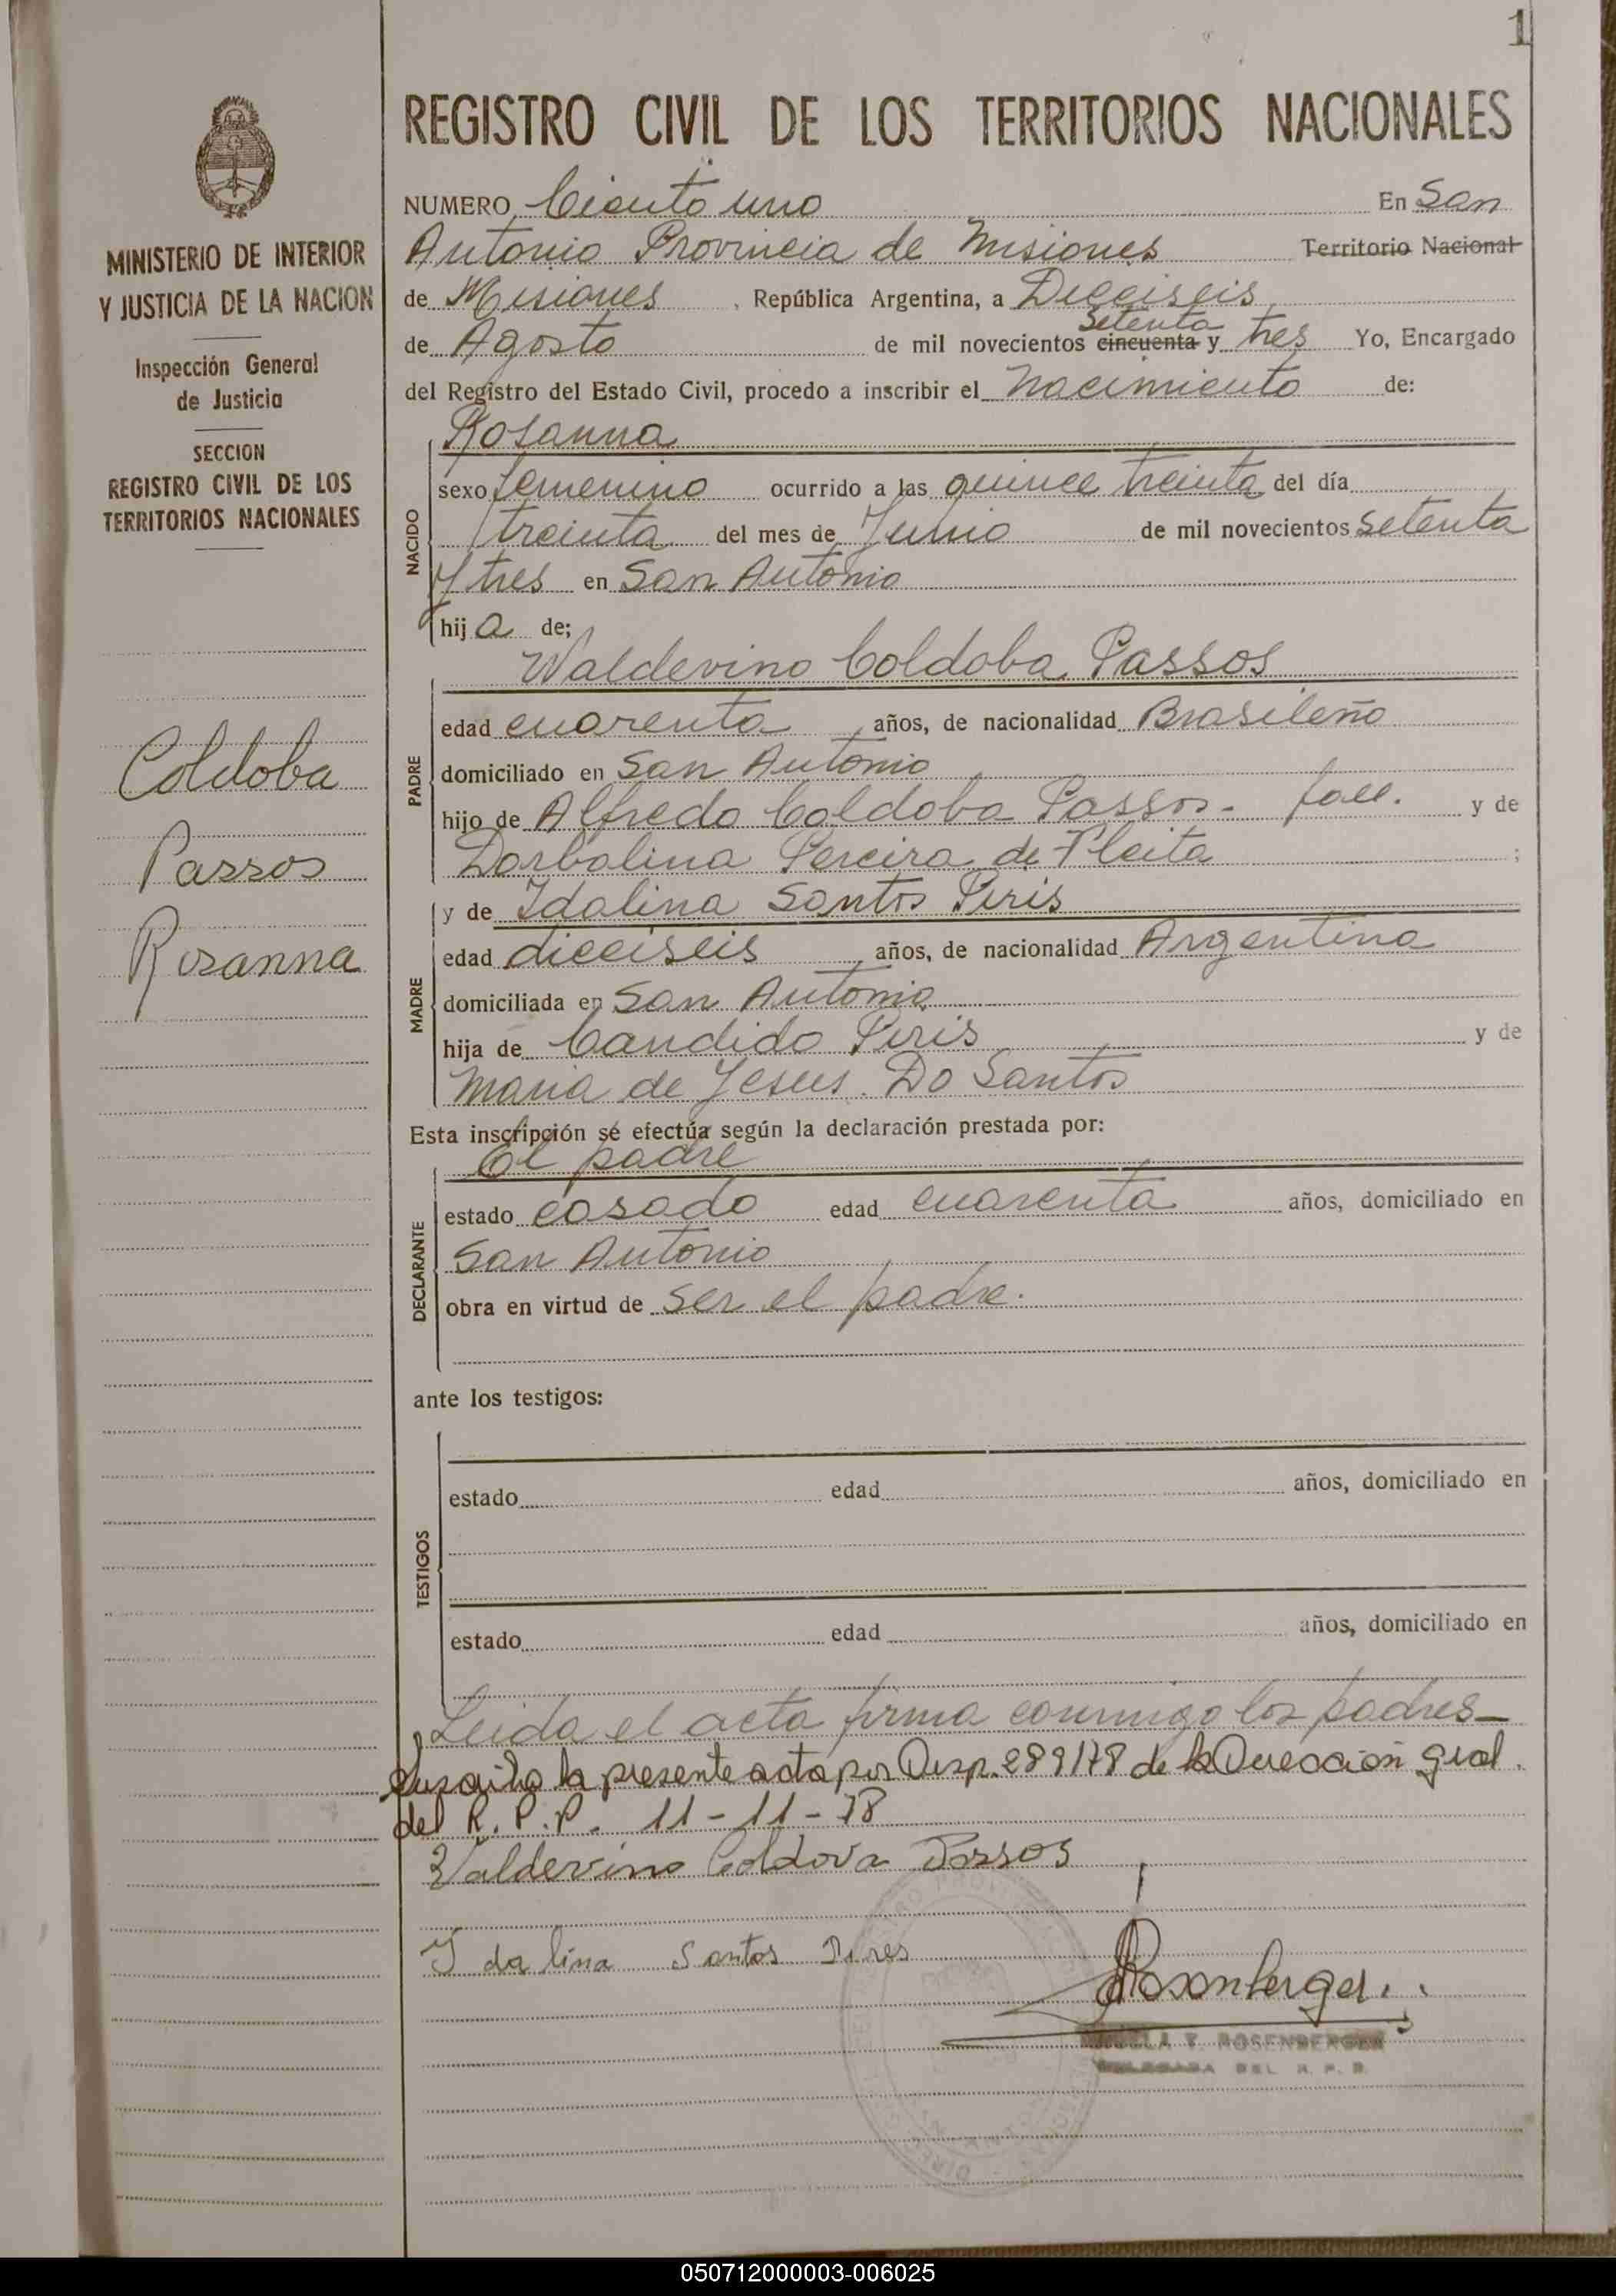 1
REGISTRO CIVIL DE LOS TERRITORIOS NACIONALES
MINISTERIO DE INTERIOR
Y JUSTICIA DE LA NACION
Inspección General
de Justicia
SECCION
REGISTRO CIVIL DE LOS
TERRITORIOS NACIONALES
Coldoba
Passos
Rosanna
NUMERO Ciento uno En San
Antonio Provincia de Misiones Territorio Nacional
de Misiones, República Argentina, a Dieciseis
de Agosto de mil novecientos cincuenta Setenta y tres Yo, Encargado
del Registro del Estado Civil, procedo a inscribir el Nacimiento de:
NACIDO
Rosanna
sexo femenino ocurrido a las quince treinta del día
treinta del mes de Junio de mil novecientos Setenta
y tres en San Antonio
hija de;
PADRE
Waldevino Coldoba Passos
edad cuarenta, años, de nacionalidad Brasileño
domiciliado en San Antonio
hijo de Alfredo Coldoba Passos - fall. y de
Dorbalina Pereira de Pleita ;
MADRE
y de Idalina Santos Piris
edad dieciseis, años, de nacionalidad Argentina
domiciliada en San Antonio
hija de Candido Piris y de
Maria de Jesus Do Santos
Esta inscripción se efectúa según la declaración prestada por:
DECLARANTE
El padre
estado casado edad cuarenta años, domiciliado en
San Antonio
obra en virtud de ser el padre.
ante los testigos:
TESTIGOS
estado edad años, domiciliado en
estado edad años, domiciliado en
Leida el acta firma conmigo los padres-
la presente acta por Disp. 289/78 de la Dirección Gral.
del R. P. P. 11-11-78
Valdevino Coldova Passos
Idalina Santos Pires
Rosenberger
T. ROSENBERGER
DELEGADA DEL R. P. P.
050712000003-006025